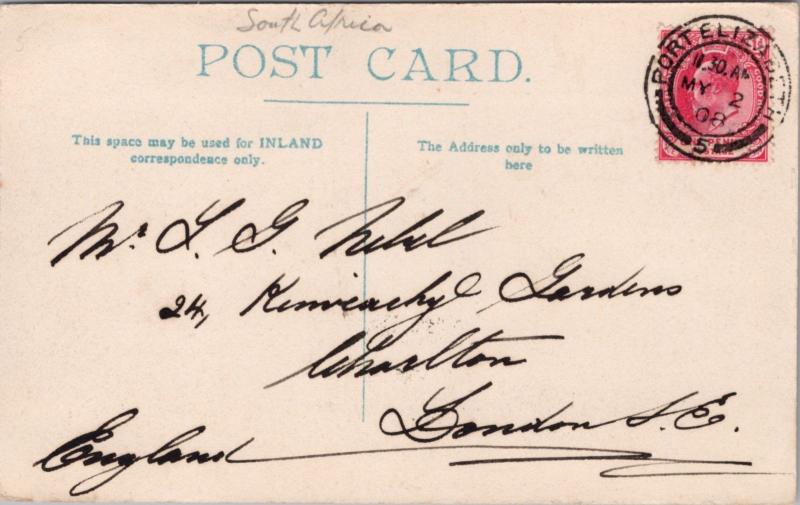 South Africa
POST CARD.
PORT ELIZABETH
11.30. AM
MY 2
08
5
This space may be used for INLAND
correspondence only.
The Address only to be written
here
Mr. L. G. Nebel
24, Gardens
Charlton
London S. E.
England